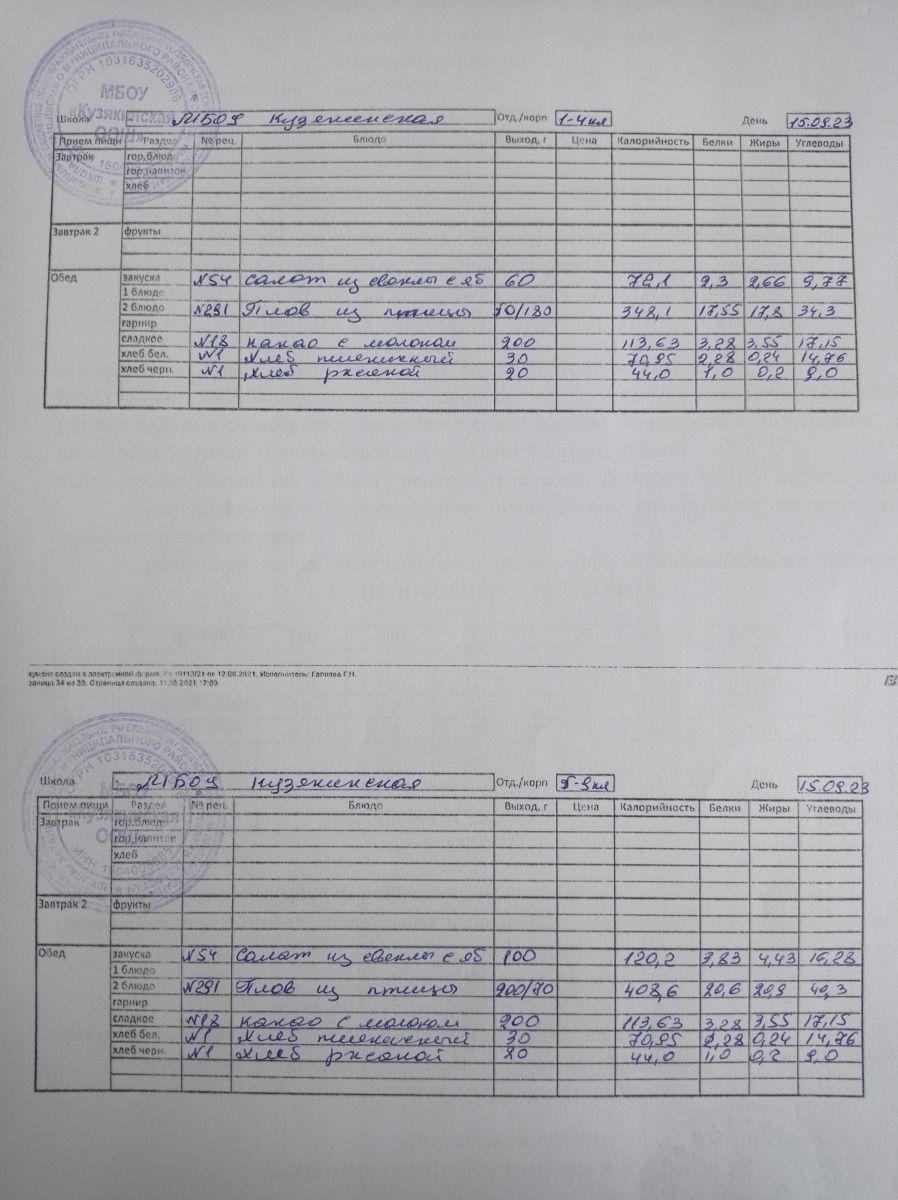 МБОУ
«Кузякинская
ООШ»
ОГРН 1031635202906
Школа МБОУ Кузякинская Отд./корп 1-4 кл День 15.09.23
Прием пищи Раздел № рец. Блюдо Выход, г Цена Калорийность Белки Жиры Углеводы
Завтрак гор.блюдо
гор.напиток
хлеб
Завтрак 2 фрукты
Обед закуска №54 Салат из свеклы с яб 60 72,1 2,66 9,77
1 блюдо
2 блюдо №291 Плов из птицы 50/180 348,1 17,55 17,8 34,3
гарнир
сладкое какао с молоком 200 113,63 3,28 3,55 17,15
хлеб бел. №1 Хлеб пшеничный 30 70,95 2,28 0,24 14,76
хлеб черн. №1 Хлеб ржаной 20 44,0 1,0 0,2 9,0
кумент создан в электронной форме. от 12.08.2021. Исполнитель: Гапиова Г.Н.
заница 34 из 35. Страница создана: 11.08.2021 17:09.
Школа МБОУ Кузякинская Отд./корп 5-9 кл День 15.09.23
Прием пищи Раздел № рец. Блюдо Выход, г Цена Калорийность Белки Жиры Углеводы
Завтрак гор.блюдо
гор.напиток
хлеб
Завтрак 2 фрукты
Обед закуска №54 Салат из свеклы с яб 100 120,2 3,83 4,43 16,28
1 блюдо
2 блюдо №291 Плов из птицы 200/70 408,6 20,6 20,9 40,3
гарнир
сладкое какао с молоком 200 113,63 3,28 3,55 17,15
хлеб бел. №1 Хлеб пшеничный 30 70,95 2,28 0,24 14,76
хлеб черн. №1 Хлеб ржаной 20 44,0 1,0 0,2 9,0